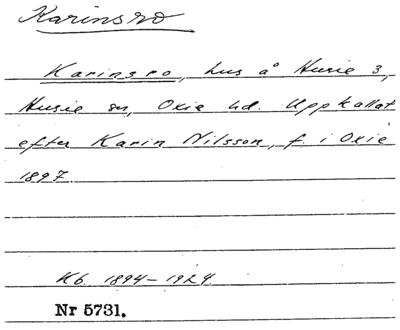 Karinsro
Karinsro, hus å Husie 3,
Husie sn, Oxie hd. Uppkallat
efter Karin Nilsson, f. i Oxie
1897.
Kb. 1894-1924.
Nr 5731.